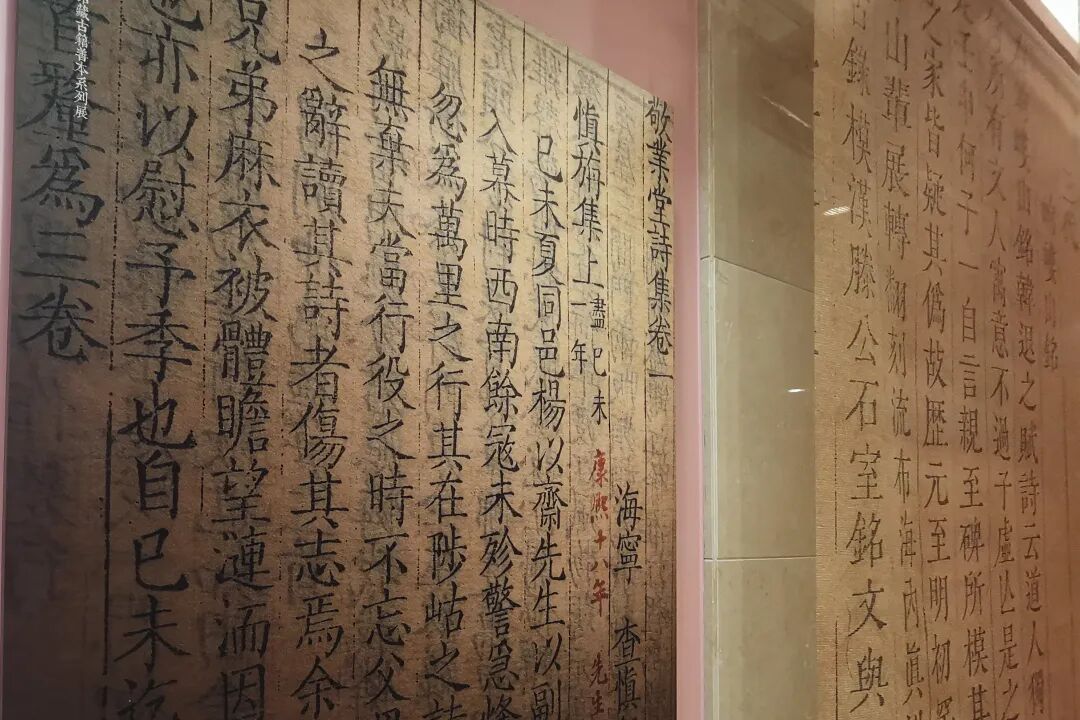 銘韓退之賦詩云道人獨
所有之人寓意不過子虛亡是之
何子一自言親至碑所模其
之家皆疑其偽故歷元至明初
山輩展轉翻刻流布海內真
古錄模漢滕公石室銘文與
敬業堂詩集卷一
海寧 查慎
慎旃集上 盡己未一年
康熙十八年 先生
己未夏同邑楊以齋先生以副
入幕時西南餘寇未殄警急烽
忽為萬里之行其在陟岵之詩
無棄夫當行役之時不忘父
之辭讀其詩者傷其志焉余
兄弟麻衣被體瞻望漣洏因
也亦以慰予季也自己未迄
釐為三卷
藏古籍善本系列展